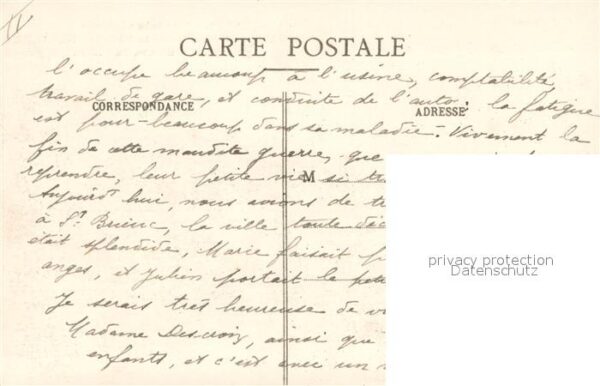 IV
CARTE POSTALE
l'occupe beaucoup à l'usine, comptabilité,
travail de gare, et conduite de l'auto, la fatigue
CORRESPONDANCE
ADRESSE
est pour beaucoup dans sa maladie. Vivement la
fin de cette maudite guerre, que
reprendre, leur petite vie si
M
Aujourd'hui, nous avons de
à St Brieuc, la ville toute
était splendide, Marie faisait
anges, et Julien portait le
Je serais très heureuse de
Madame Descroix, ainsi que
enfants, et c'est avec un
privacy protection
Datenschutz